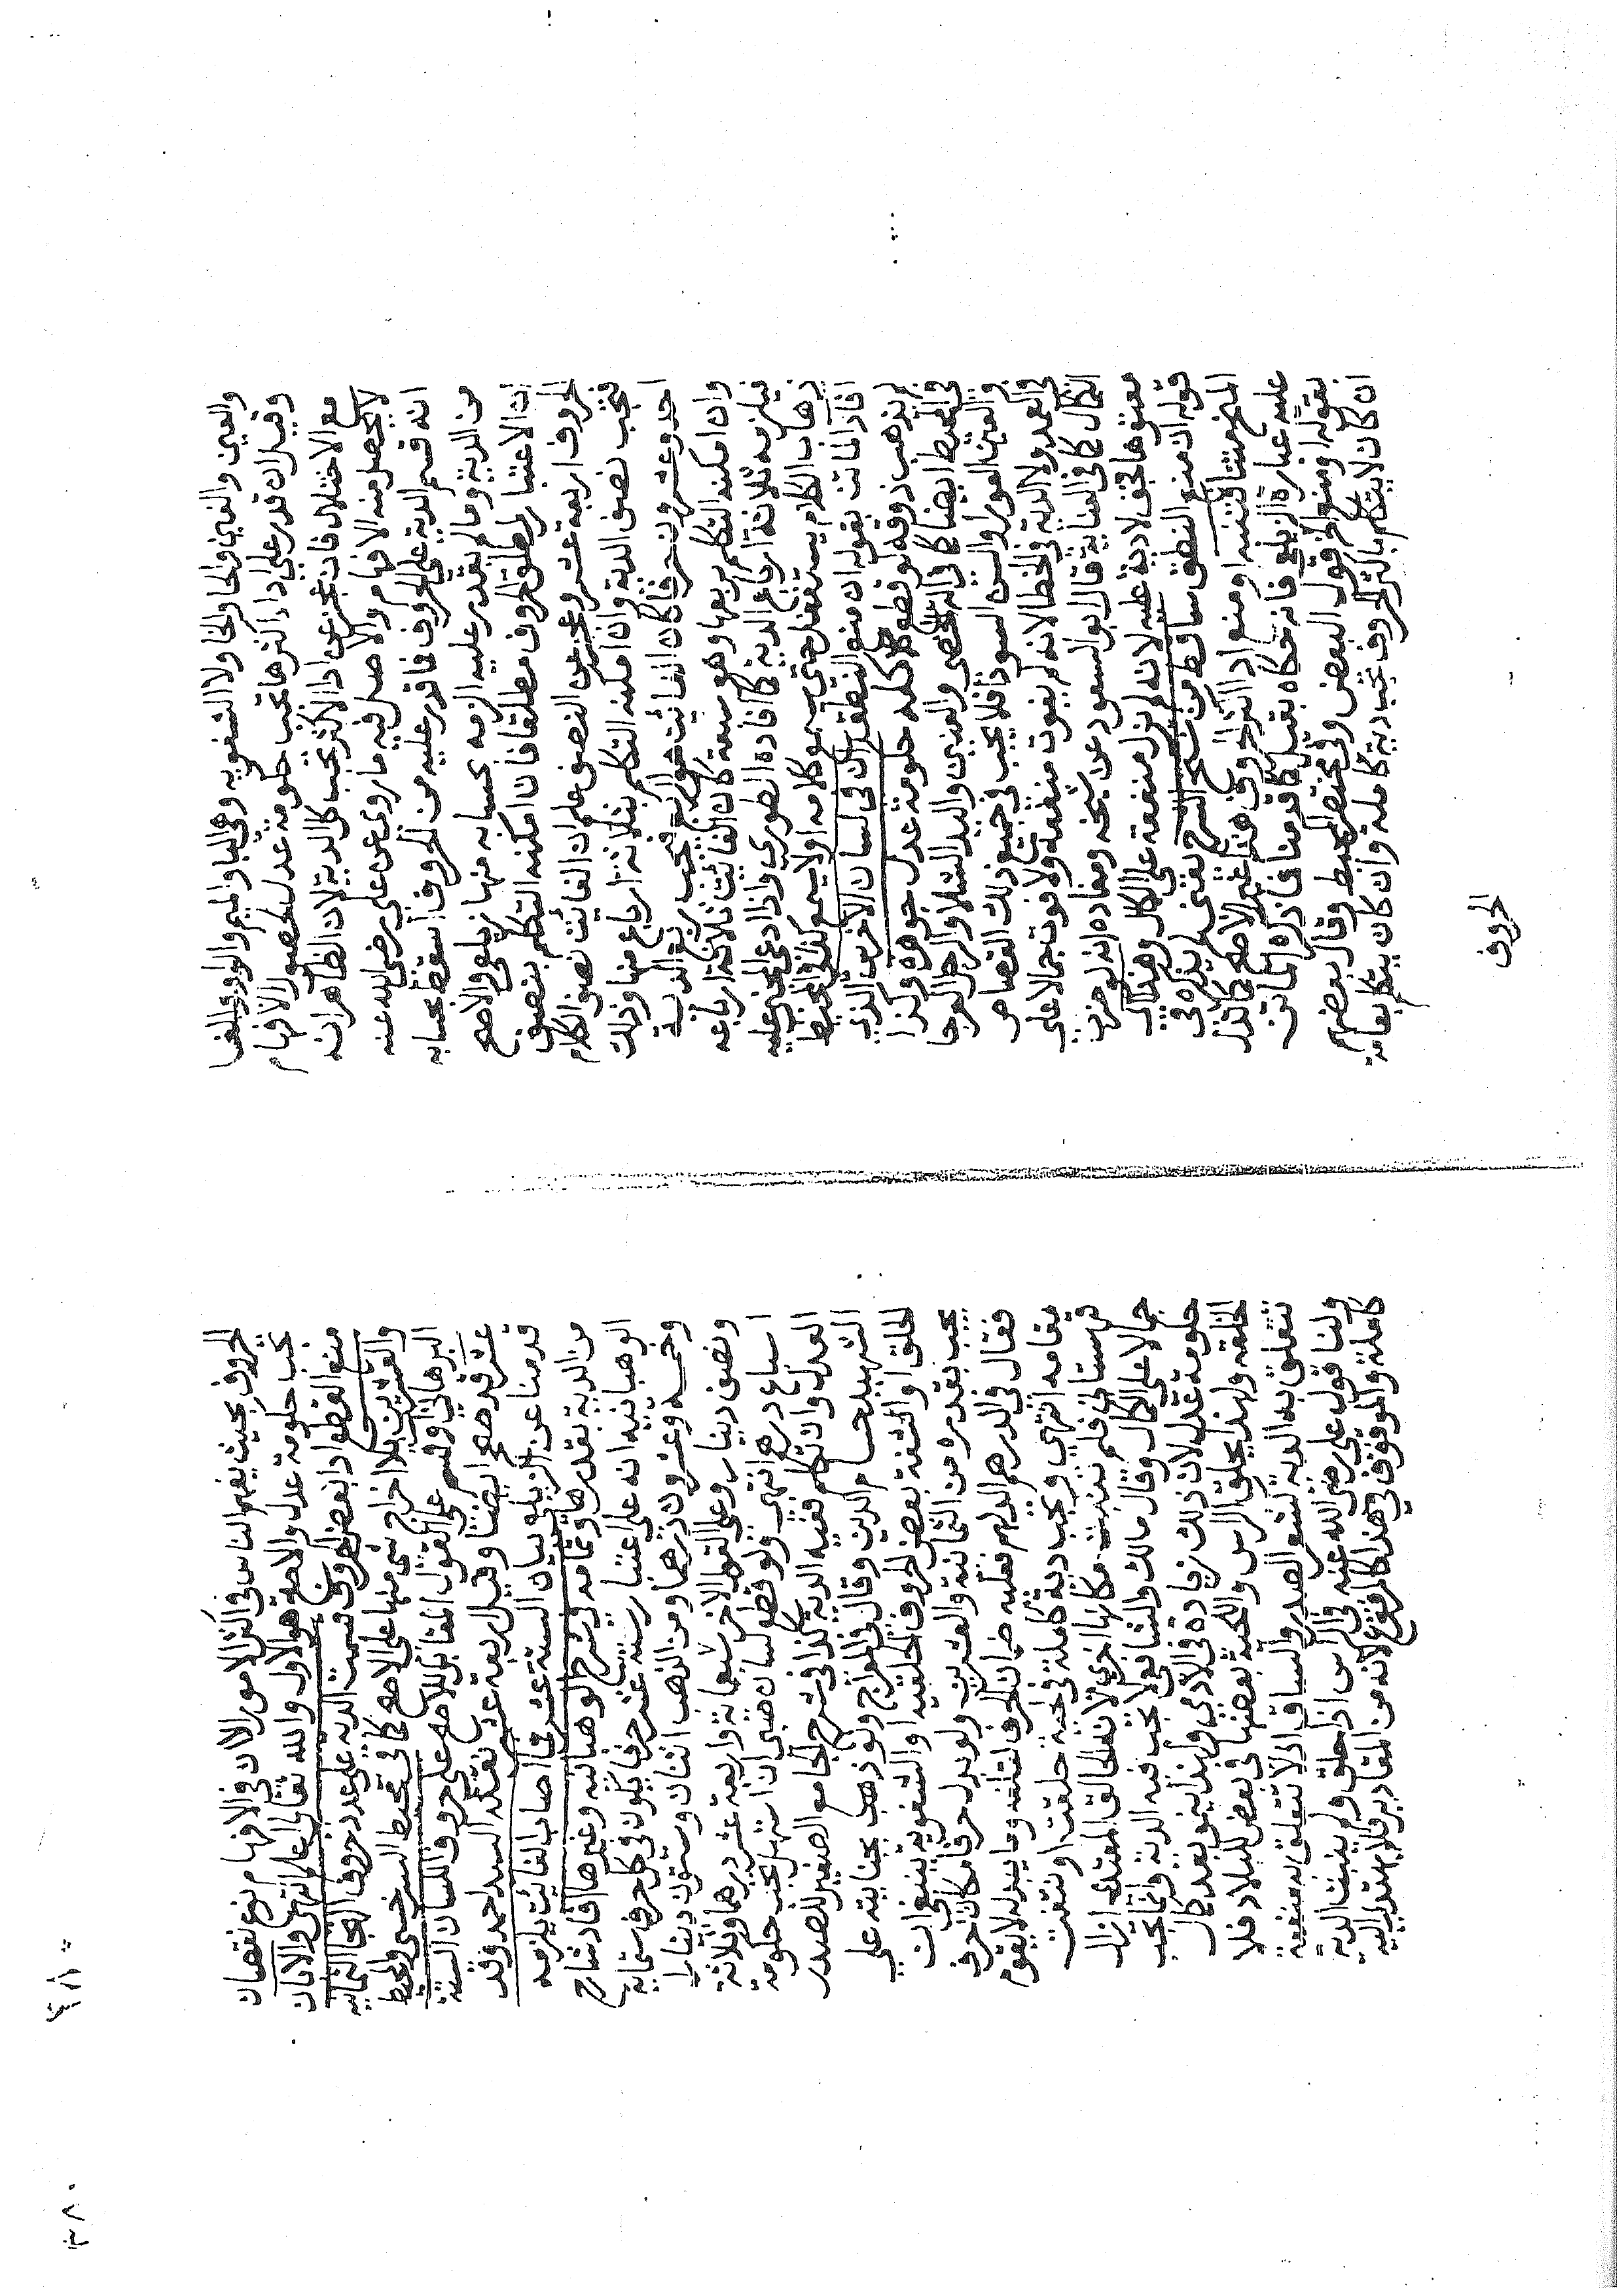 والعين والغين والحا والخا ولا الشفويه وهي البا والميم والواو والفا
وقيل ان قدر علي ادا اكثرها تجب حكومة عدل لحصول الافهام
مع الاختلال فان عجز عن ادا الاكثر يجب كل الدية لان الظاهر انه
لا يحصل منه الافهام والاصل فيه ما روي عن علي رضي الله عنه
انه قسم الدية علي الحروف فما قدر عليه من الحروف اسقط بحسابه
من الدية وما لم يقدر عليه الزمه بحسابه منها زيلعي والاصح
ان الاعتبار لمطلق الحروف مطلقا فان امكنه التكلم بنصف
الحروف اربعة عشر وعجز عن النصف علم ان الفائت نصف الكلام
فيجب نصف الدية وان امكنه التكلم بثلاثة ارباع منها وذلك
احد وعشرون حرفا كان الفائت هو الربع فيجب ربع الدية
وان امكنه التكلم بربعها وهو سبعة كان الفائت ثلاثة ارباعه
فيلزمه ثلاثة ارباع الدية كما افاده الطوري واذا ادعي المجني عليه
ذهاب الكلام يستغفل حتي يسمع كلامه او لا يسمع كذا في المحيط
افاد الماتن بقوله ان منع النطق ان في لسان الاخرس الذي
لم يذهب ذوقه لو قطع كله حكومة عدل جوهرة وكذا
في العبد ايضا كما في الة الخصي والعنين واليد الشلا والرجل العرجا
والعين العورا والسن السودا فلا يجب في جميع ذلك القصاص
في العمد ولا الدية في الخطا لانه لم يفوت منفعة ولا فوت جمالا علي
الكمال كما في العناية قال ابو السعود عن شيخه ومفاده انه لو ضرب
لا دية عليه لانه لم يزل منفعة علي الكمال
قوله ان منع النطق ساقط من نسخ الشرح يعني لم يذكره في
المنح متنا فتنبه او منع ادا اكثر الحروف هذا غير الاصح كما
عليه عبارة الزيلعي فانه حكاه بقيل كما قدمنا فما ذكره الماتن
بقوله او منع الخ قول البعض وفي مختصر المحيط وقال بعضهم
ان كان لا يتكلم باكثر الحروف تجب دية كاملة وان كان يتكلم بعامة
الحروف
الحروف بحيث يفهم الناس في اكثر الامور الا ان في الافهام نوع نقصان
تجب حكومة عدل والاصح هو الاول والله تعالي اعلم انتهي والا بان
منع القطع ادا بعض الحروف قسمت الدية علي عدد حروف الهجا الثمانية
والعشرين بلا اخراج شي منها علي الاصح كما في محيط السرخسي والمحيط
البرهاني او قسم علي القول المقابل للاصح علي حروف اللسان الستة
عشر وقد صحح ايضا وقيل اربعة عشر نقله السيد احمد وقد
قدمنا عن الزيلعي بيان الستة عشر فما اصاب الفائت يلزمه
من الدية بقدرها وتمامه في شرح الوهبانيه وغيرها افاد شارح
الوهبانيه انه علي اعتبار ستة عشر حرفا يكون في كل حرف ستماية
وخمسه وعشرون درهما ومن الذهب اثنان وستون دينارا
ونصف دينار وعلي القول الاخر سبعماية واربعة عشر درهما وثلاثة
اسباع درهم انتهي ولو قطع لسان صبي ان استهل تجب حكومة
العدل وان تكلم ففيه الدية كذا في شرح الجامع الصغير للصدر
الشهيد حسام الدين وقال في المعراج ولو ذهب بجنايته علي
الحلق او الشفة بعض الحروف الحلقية او الشفوية ينبغي ان
يجب بقدره من الثمانية والعشرين ولو بدل حرفا مكان حرف
فقال في الدرهم الدلهم فعليه ضمان الحرف لتلفه وما يبدله لا يقوم
مقامه انتهي وتجب دية كاملة في لحية حلقت او نتفت
قهستاني فلم تنبت مكانها اخري لانه الحالق المعتد ازال
جمالا علي الكمال وقال مالك والشافعي لا تجب فيه الدية وانما تجب
حكومة عدل لان ذلك زيادة في الادمي ولهذا ينمو بعد كمال
الخلقه ولهذا يحلق الراس واللحية بعضها في بعض البلاد فلا
تتعلق به الدية كشعر الصدر والساق اذ لا تتعلق به منفعة
ولنا قول علي رضي الله عنه في الراس اذا حلق ولم ينبت الدية
كاملة والموقوف في هذا كالمرفوع لانه من المقادير فلا يهتدي اليه